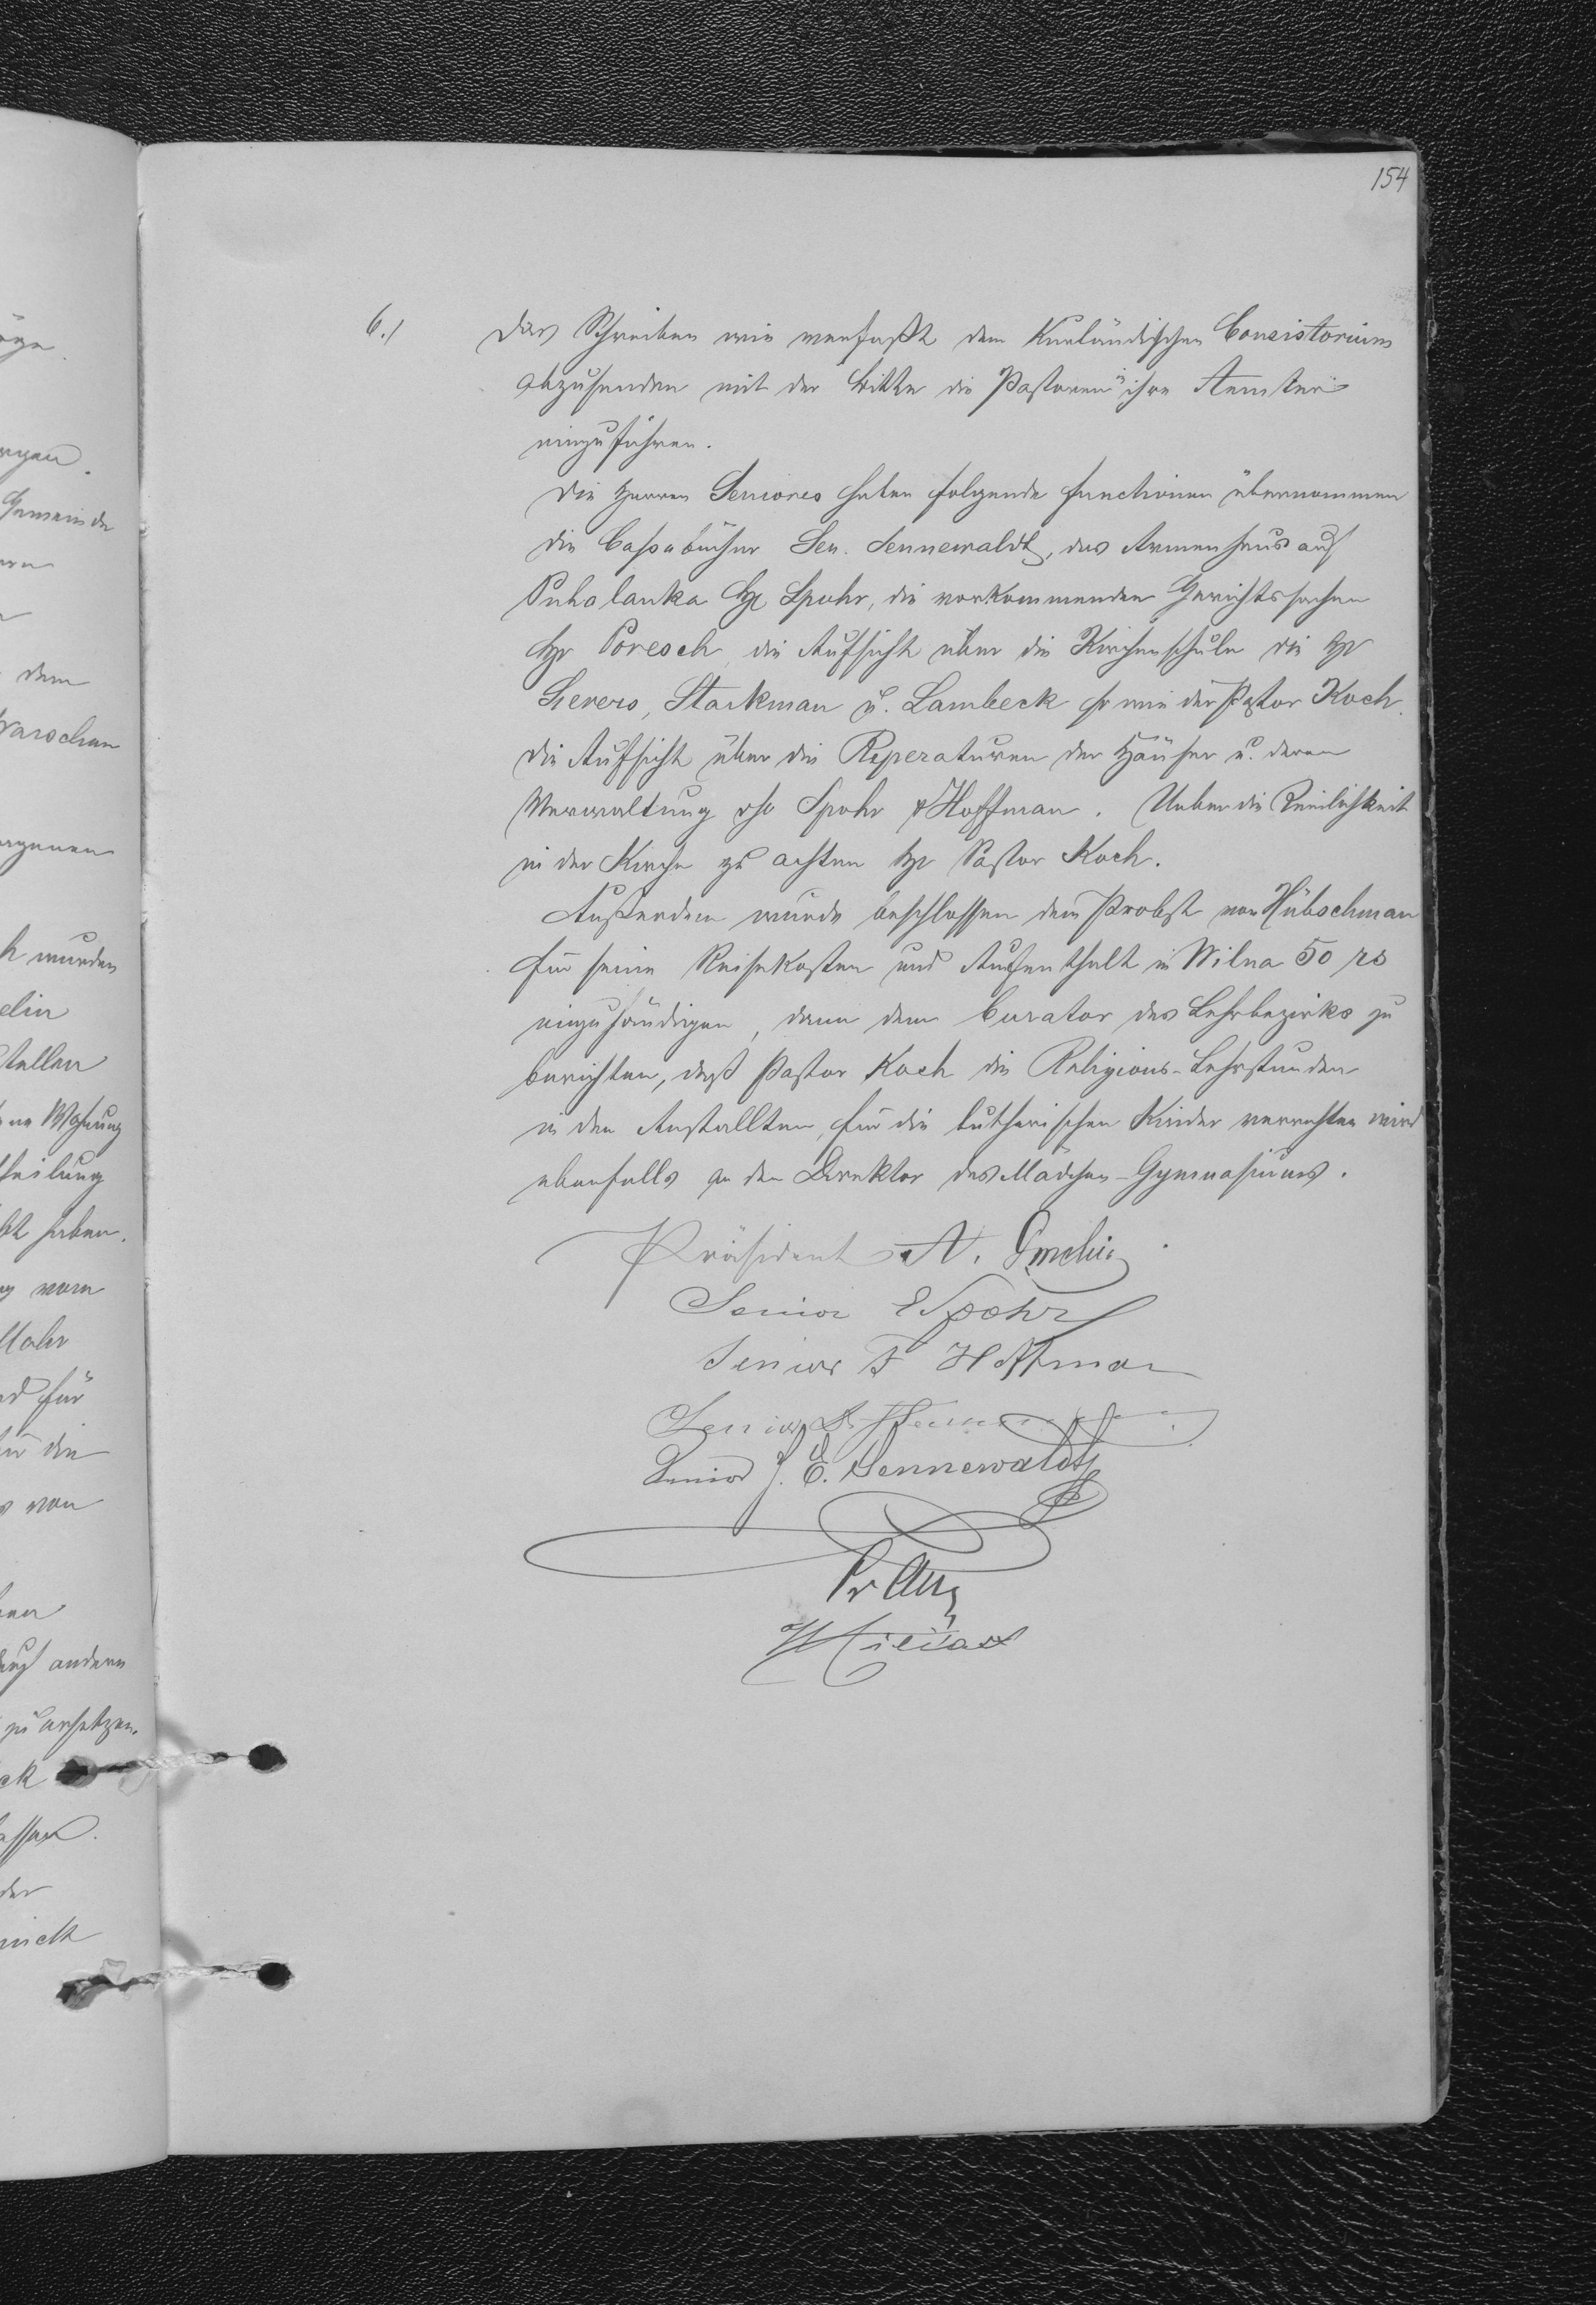 154
6./ Das Schreiben wie verfaßt dem Kurländischen Consistorium
abzusenden mit der Bitte die Pastoren in ihre Aemter
einzuführen.
Die Herren Seniores haben folgende functionen übernommen
die Cassabücher Sen. Sennewaldt, das Armenhaus auf
Puhalanka Hr Spohr, die vorkommenden Gerichtssachen
Hr Poresch, die Aufsicht über die Kirchenschule die Hr
Sievers, Starkman u. Lambeck so wie der Pastor Koch.
die Aufsicht über die Reperaturen der Häuser u. deren
Verwaltung Spohr & Hoffman. Ueber die Reinlichkeit
in der Kirche zu achten Hr Pastor Koch.
Außerdem wurde beschlossen dem Probst von Hübschman
für seine Reisekosten und Aufenthalt in Wilna 50 rs
einzuhändigen, dann dem Curator des Lehrbezirks zu
berichten, daß Pastor Koch die Religions-Lehrstunden
in den Anstallten, für die lutherischen Kinder verrichten wird
ebenfalls an den Direktor des Mädchen-Gymnasiums.
Präsident A.
Senior E Spohr
Senior F Hoffman
Senior
Senior J. E. Sennewaldt
Gemeinde
dem
Warschau
wurden
stellen
Wohnung
theilung
haben.
vom
für
die
von
auf andern
zu ersetzen.
der